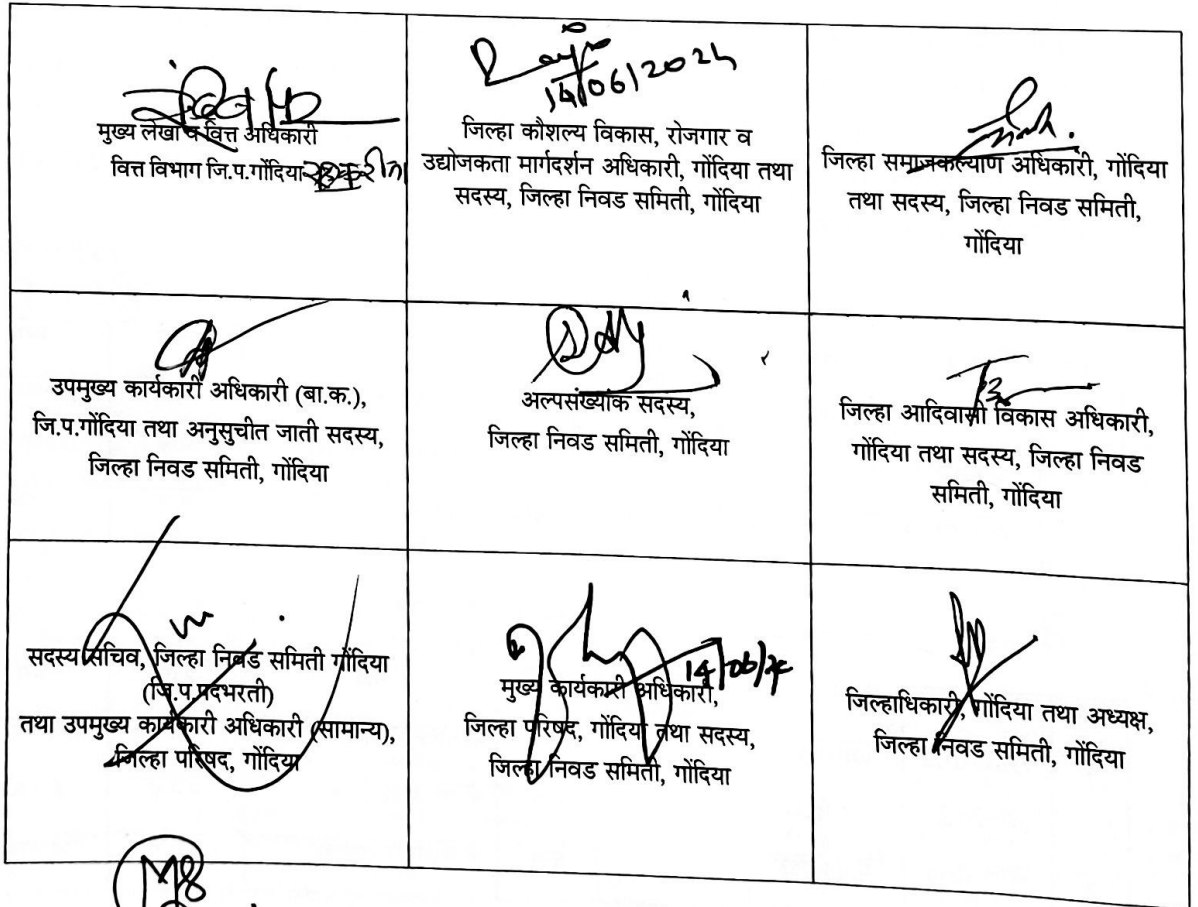 मुख्य लेखा व वित्त अधिकारी
वित्त विभाग जि.प.गोंदिया
14/06/2024
जिल्हा कौशल्य विकास, रोजगार व
उद्योजकता मार्गदर्शन अधिकारी, गोंदिया तथा
सदस्य, जिल्हा निवड समिती, गोंदिया
जिल्हा समाजकल्याण अधिकारी, गोंदिया
तथा सदस्य, जिल्हा निवड समिती,
गोंदिया
उपमुख्य कार्यकारी अधिकारी (बा.क.),
जि.प.गोंदिया तथा अनुसुचीत जाती सदस्य,
जिल्हा निवड समिती, गोंदिया
अल्पसंख्यांक सदस्य,
जिल्हा निवड समिती, गोंदिया
जिल्हा आदिवासी विकास अधिकारी,
गोंदिया तथा सदस्य, जिल्हा निवड
समिती, गोंदिया
सदस्य सचिव, जिल्हा निवड समिती गोंदिया
(जि.प.पदभरती)
तथा उपमुख्य कार्यकारी अधिकारी (सामान्य),
जिल्हा परिषद, गोंदिया
14/06/24
मुख्य कार्यकारी अधिकारी,
जिल्हा परिषद, गोंदिया तथा सदस्य,
जिल्हा निवड समिती, गोंदिया
जिल्हाधिकारी, गोंदिया तथा अध्यक्ष,
जिल्हा निवड समिती, गोंदिया